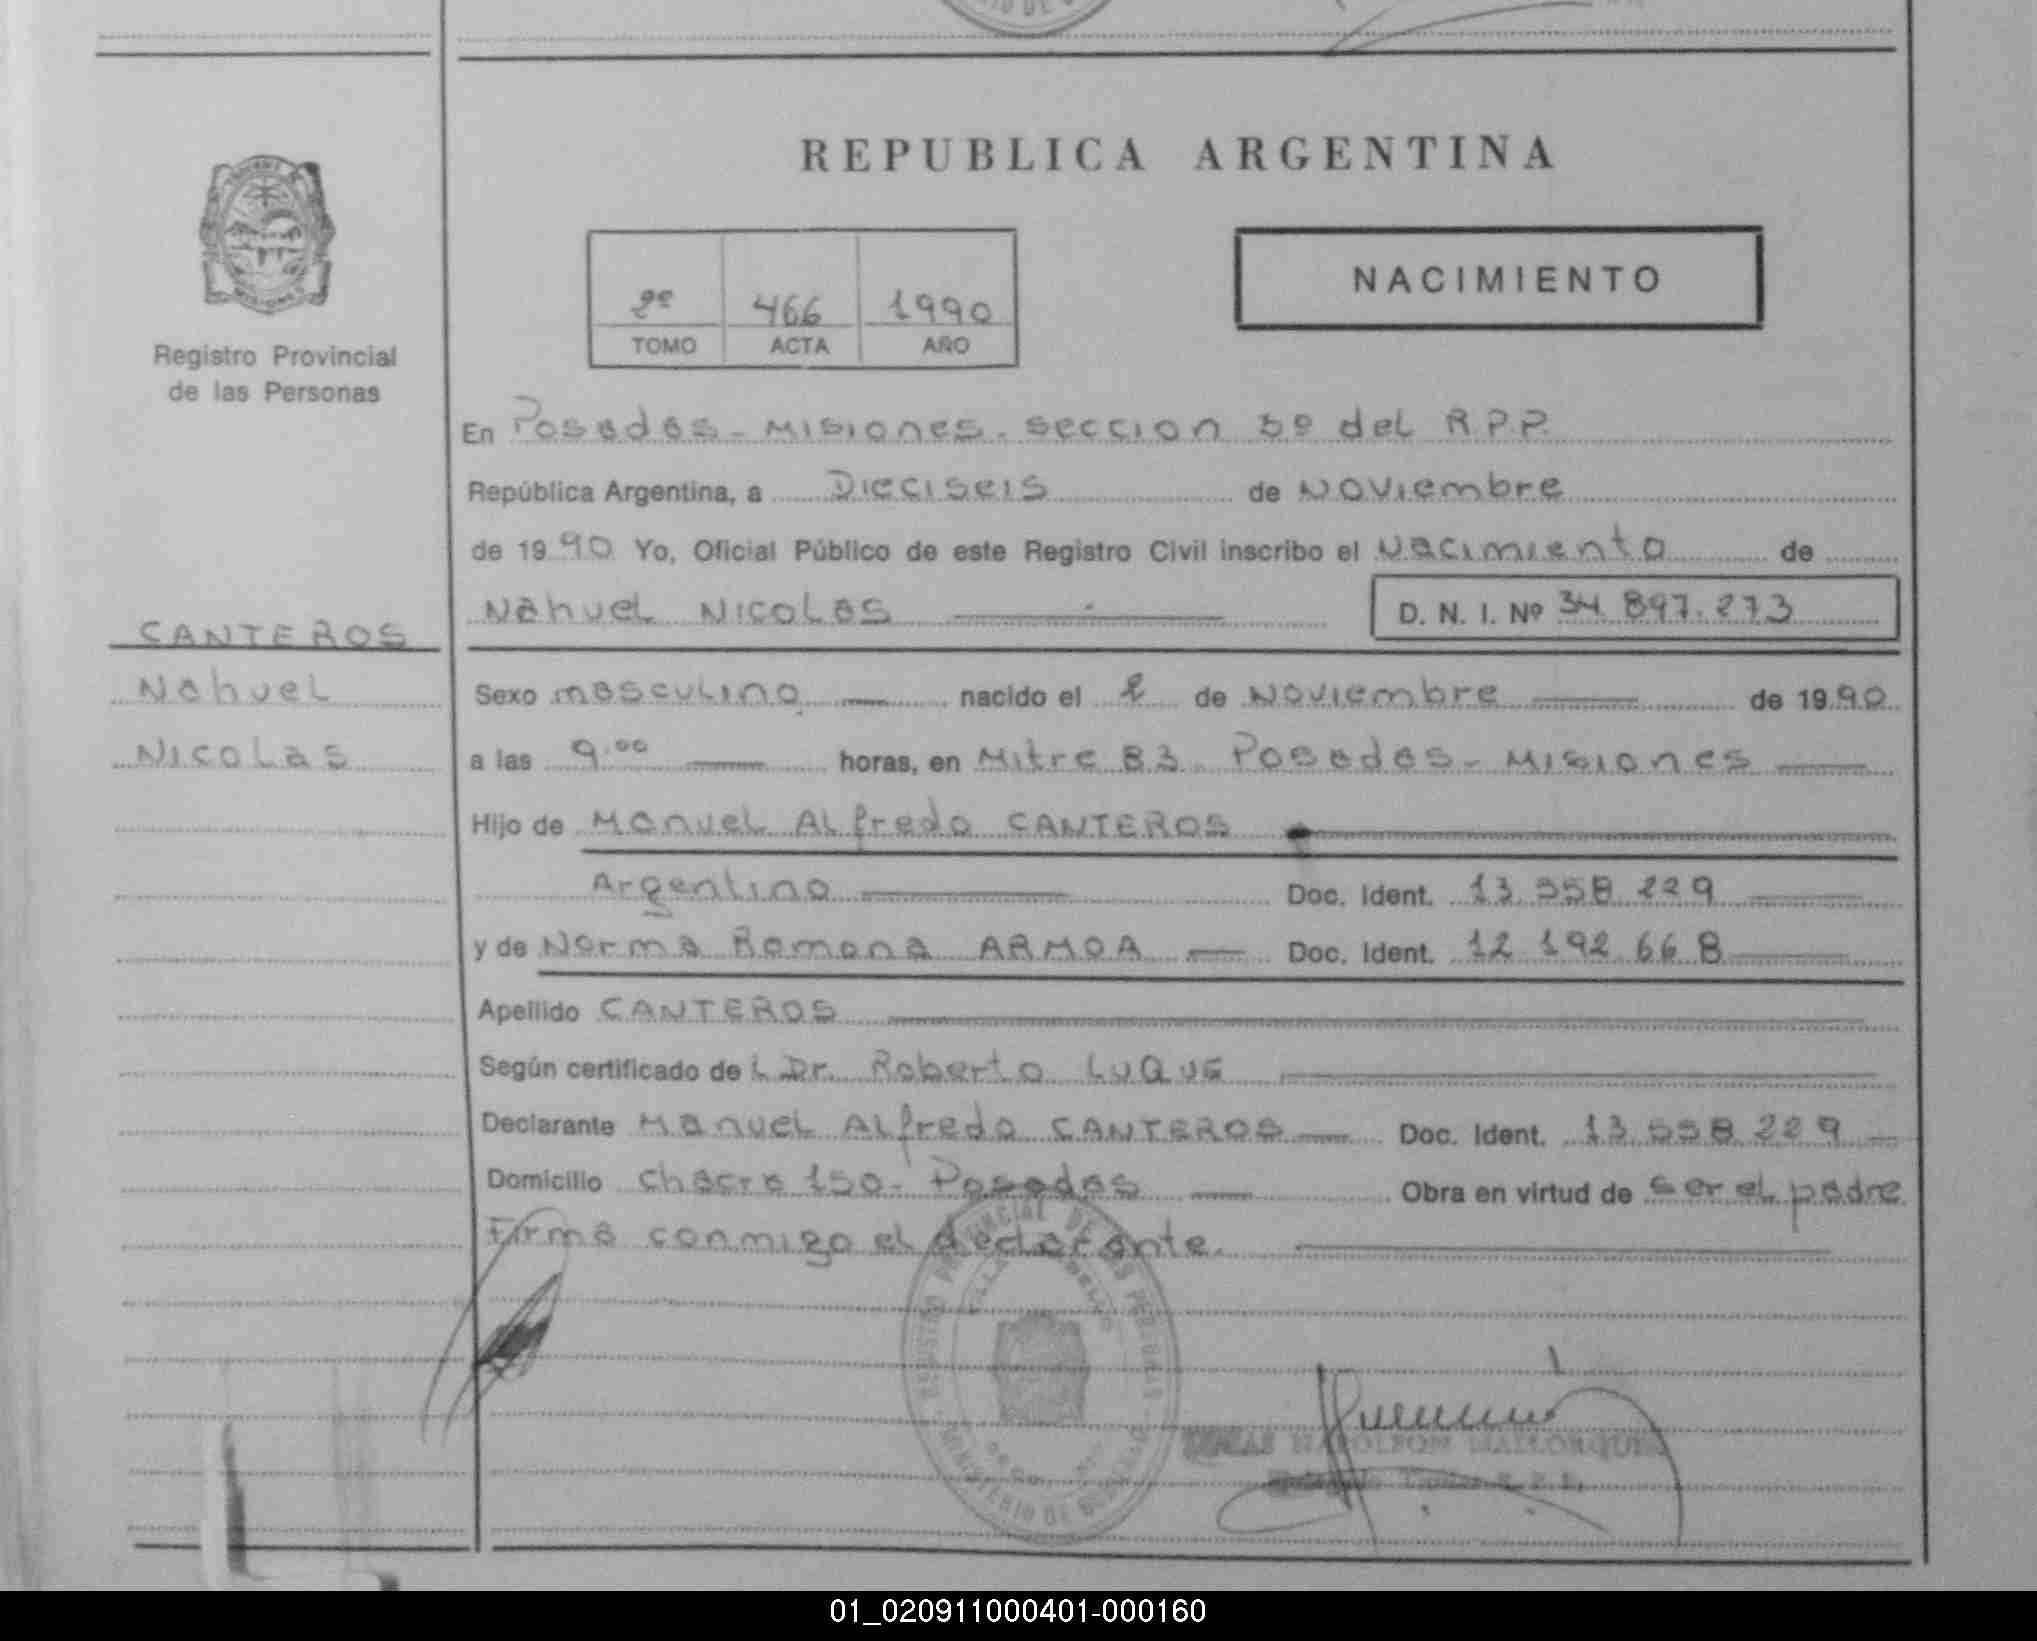 REPUBLICA ARGENTINA
Registro Provincial
de las Personas
2º 466 1990
TOMO ACTA AÑO
NACIMIENTO
En Posadas - Misiones. seccion 5º del R.P.P.
República Argentina, a Dieciseis de Noviembre
de 1990 Yo, Oficial Público de este Registro Civil inscribo el Nacimiento de
Nahuel Nicolas D. N. I. Nº 34.897.273
CANTEROS
Nahuel
Nicolas
Sexo masculino nacido el 2 de Noviembre de 1990
a las 9.00 horas, en Mitre 83 Posadas - Misiones
Hijo de Manuel Alfredo CANTEROS
Argentino Doc. Ident. 13.558.229
y de Norma Ramona ARMOA Doc. Ident. 12.192.668
Apellido CANTEROS
Según certificado de L Dr. Roberto LUQUE
Declarante Manuel Alfredo CANTEROS Doc. Ident. 13.558.229
Domicilio Chacra 150 - Posadas Obra en virtud de ser el padre
Firma conmigo el declarante.
REGISTRO PROVINCIAL DE LAS PERSONAS
MINISTERIO DE GOBIERNO
NAPOLEON MALLORQUIN
01_020911000401-000160